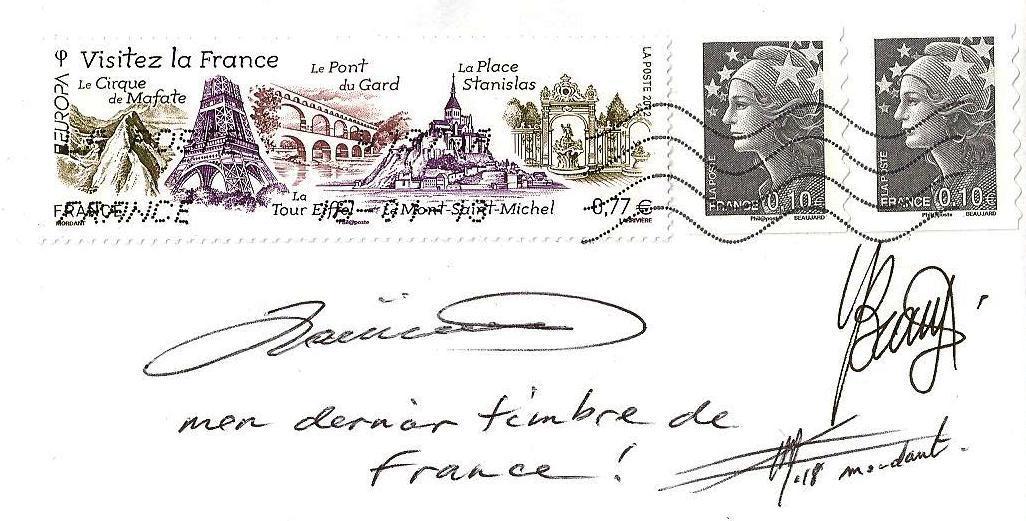 φ Visitez la France
EUROPA
Le Cirque
de Mafate
Le Pont
du Gard
La Place
Stanislas
LA POSTE 2012
La
Tour Eiffel
Le Mont-Saint-Michel
FRANCE
0,77 €
MORDANT
Phil@poste
LARIVIÈRE
LA POSTE
FRANCE 0,10 €
Phil@poste BEAUJARD
LA POSTE
FRANCE 0,10 €
Phil@poste BEAUJARD
FRANCE
mon dernier timbre de
France !
mordant.